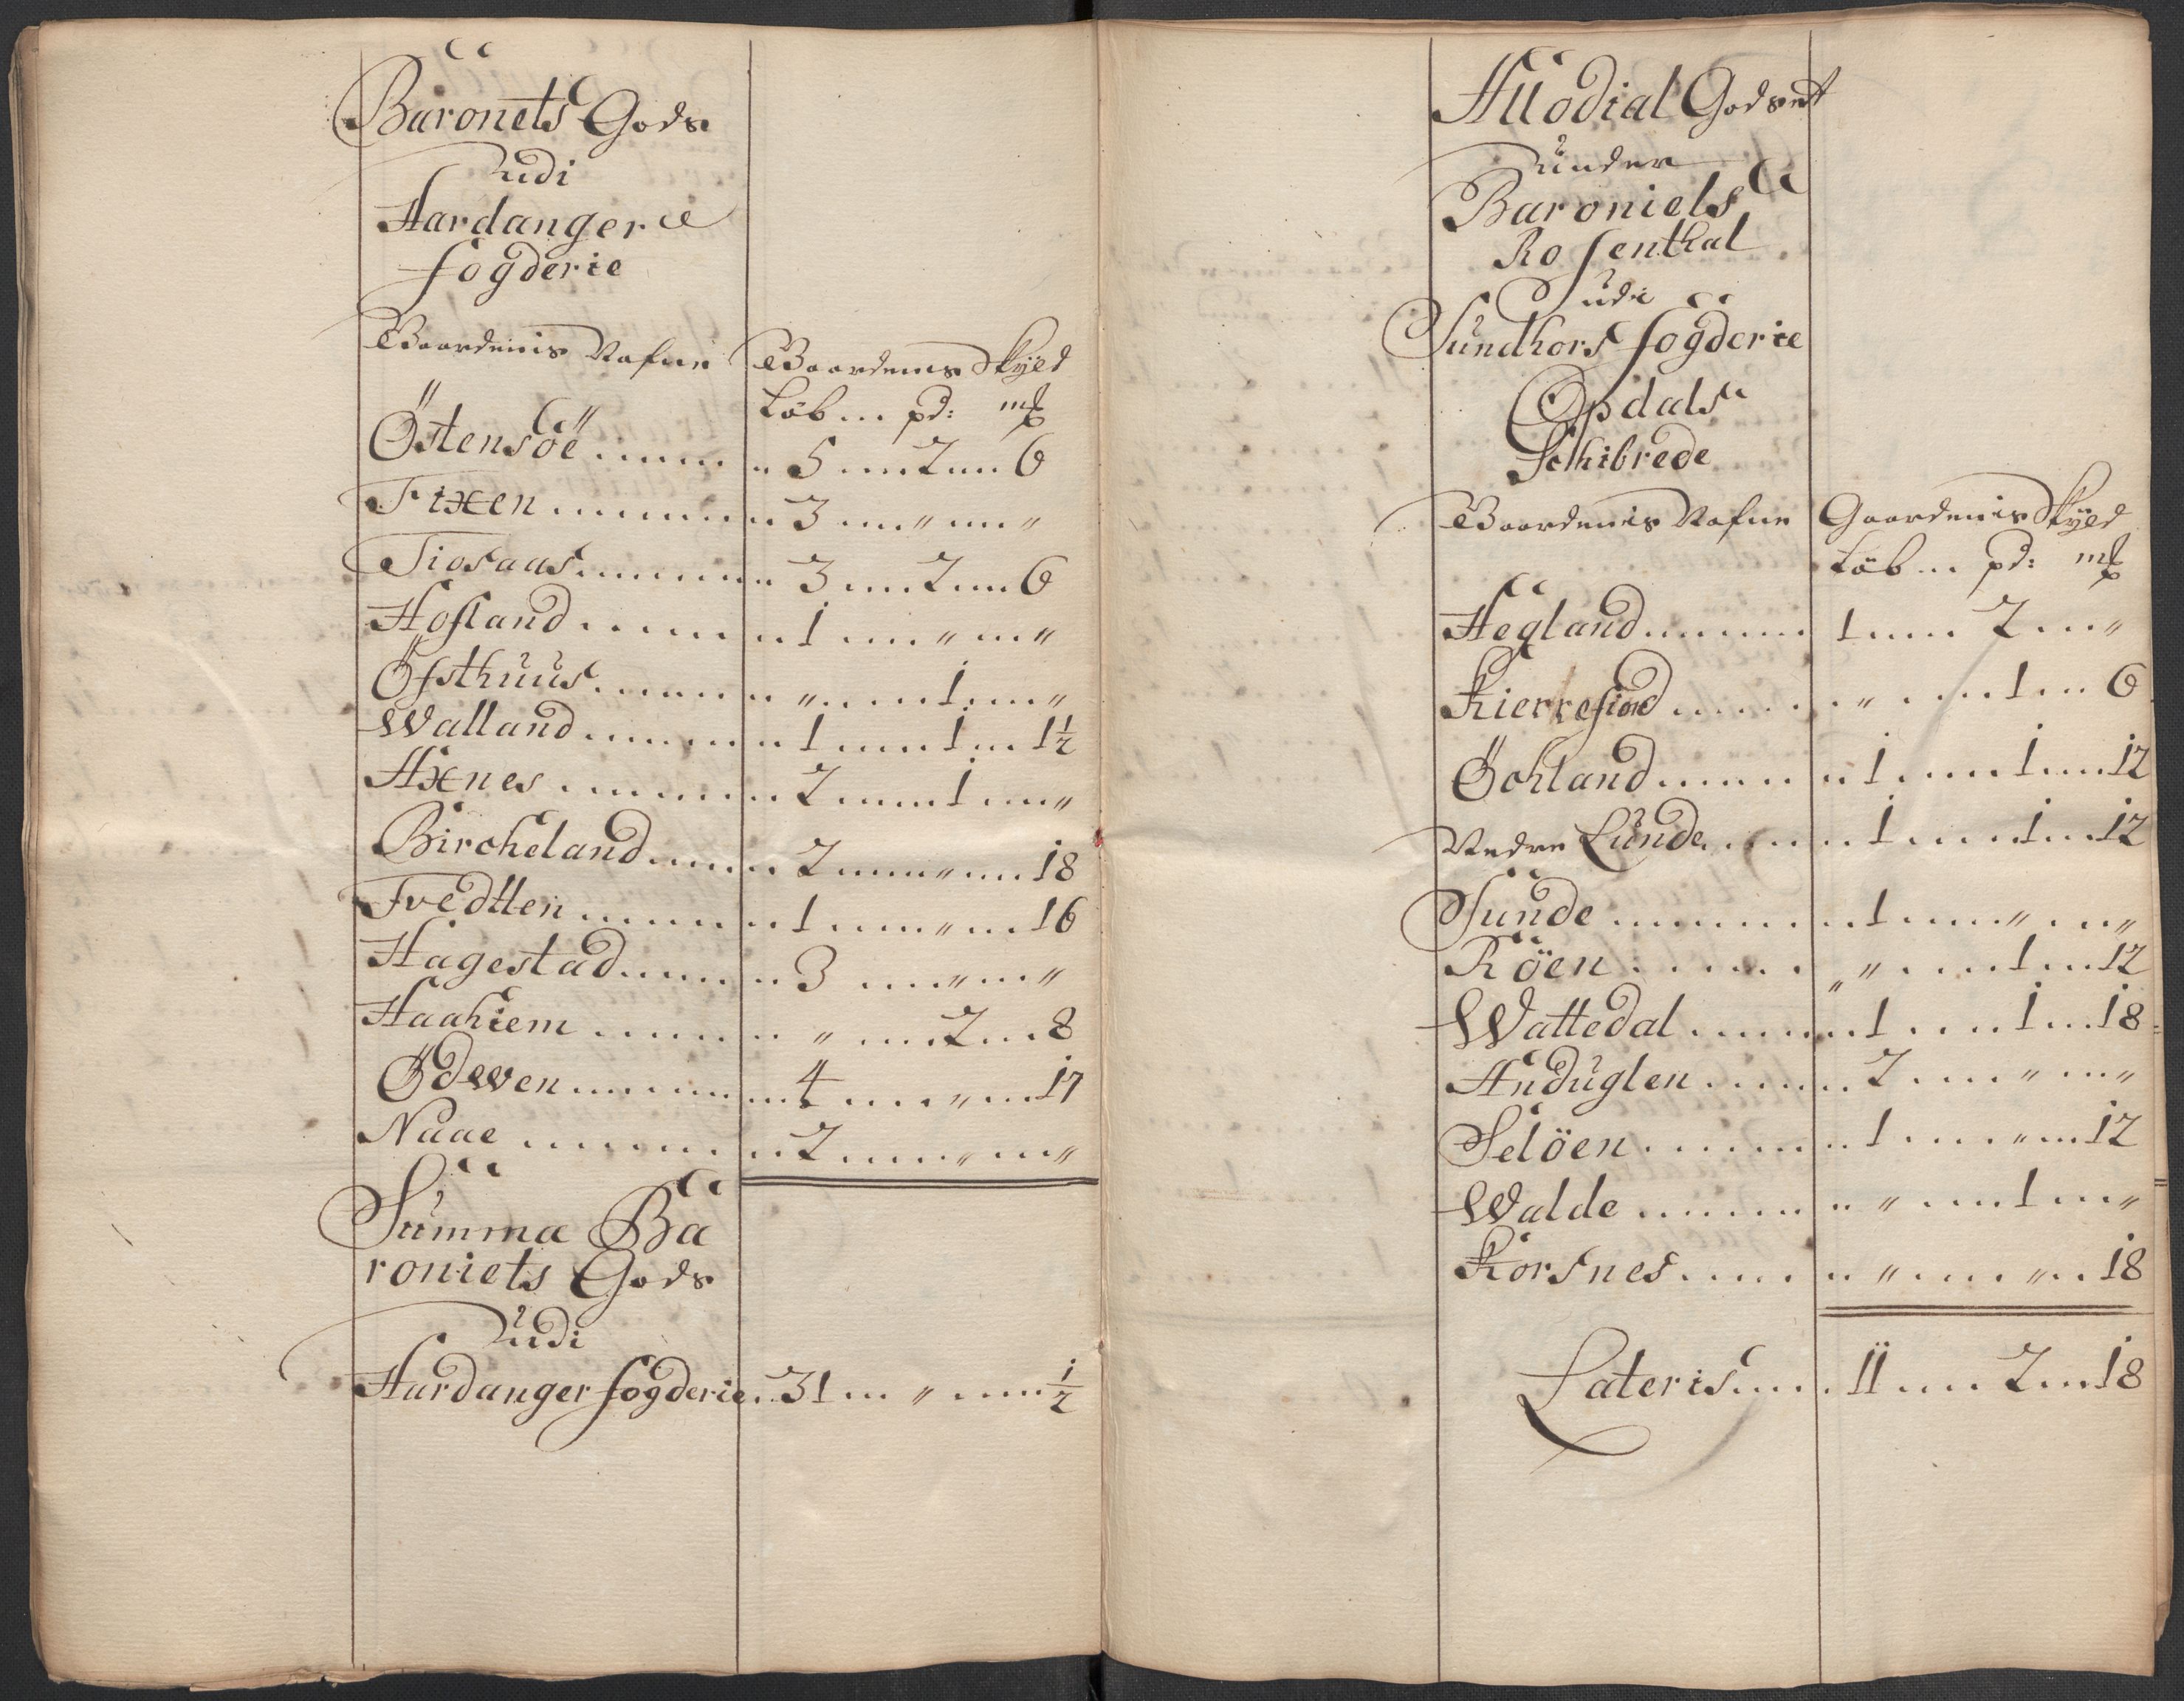 Baronets Gods
udi
Hardanger
fogderie
Gaardenis Nafne Gaardenes Skyld
Løb ... pd: mk
Östensöe ...... 5 ... 2 ... 6
Tixen ...... 3 ... " ... "
Tiosaas ...... 3 ... 2 ... 6
Hofland ...... 1 ... " ... "
Öfsthuus ...... " ... 1 ... "
Walland ...... 1 ... 1 ... 1½
Axnes ...... 2 ... 1 ... "
Bircheland ...... 2 ... " ... 18
Tvedtten ...... 1 ... " ... 16
Hagestad ...... 3 ... " ... "
Haahiem ...... " ... 2 ... 8
Ödwen ...... 4 ... " ... 17
Naae ...... 2 ... " ... "
Summa Ba
roniets Gods
udi
Hardanger fogderie 31 ... " ... ½
Allodial Godset
under
Baroniets
Rosenthal
udi
Sundhors fögderie
Opdals
Schibrede
Gaardenis Nafne Gaardenis Skyld
Løb ... pd: mk
Hegland ...... 1 ... 2 ... "
Kierrefiord ...... " ... 1 ... 6
Öchland ...... 1 ... 1 ... 12
Nedre Lunde ...... 1 ... 1 ... 12
Sunde ...... 1 ... " ... "
Röen ...... " ... 1 ... 12
Wattedal ...... 1 ... 1 ... 18
Anduglen ...... 2 ... " ... "
Selöen ...... 1 ... " ... 12
Walde ...... " ... 1 ... "
Korsnes ...... " ... " ... 18
Lateris ...... 11 ... 2 ... 18